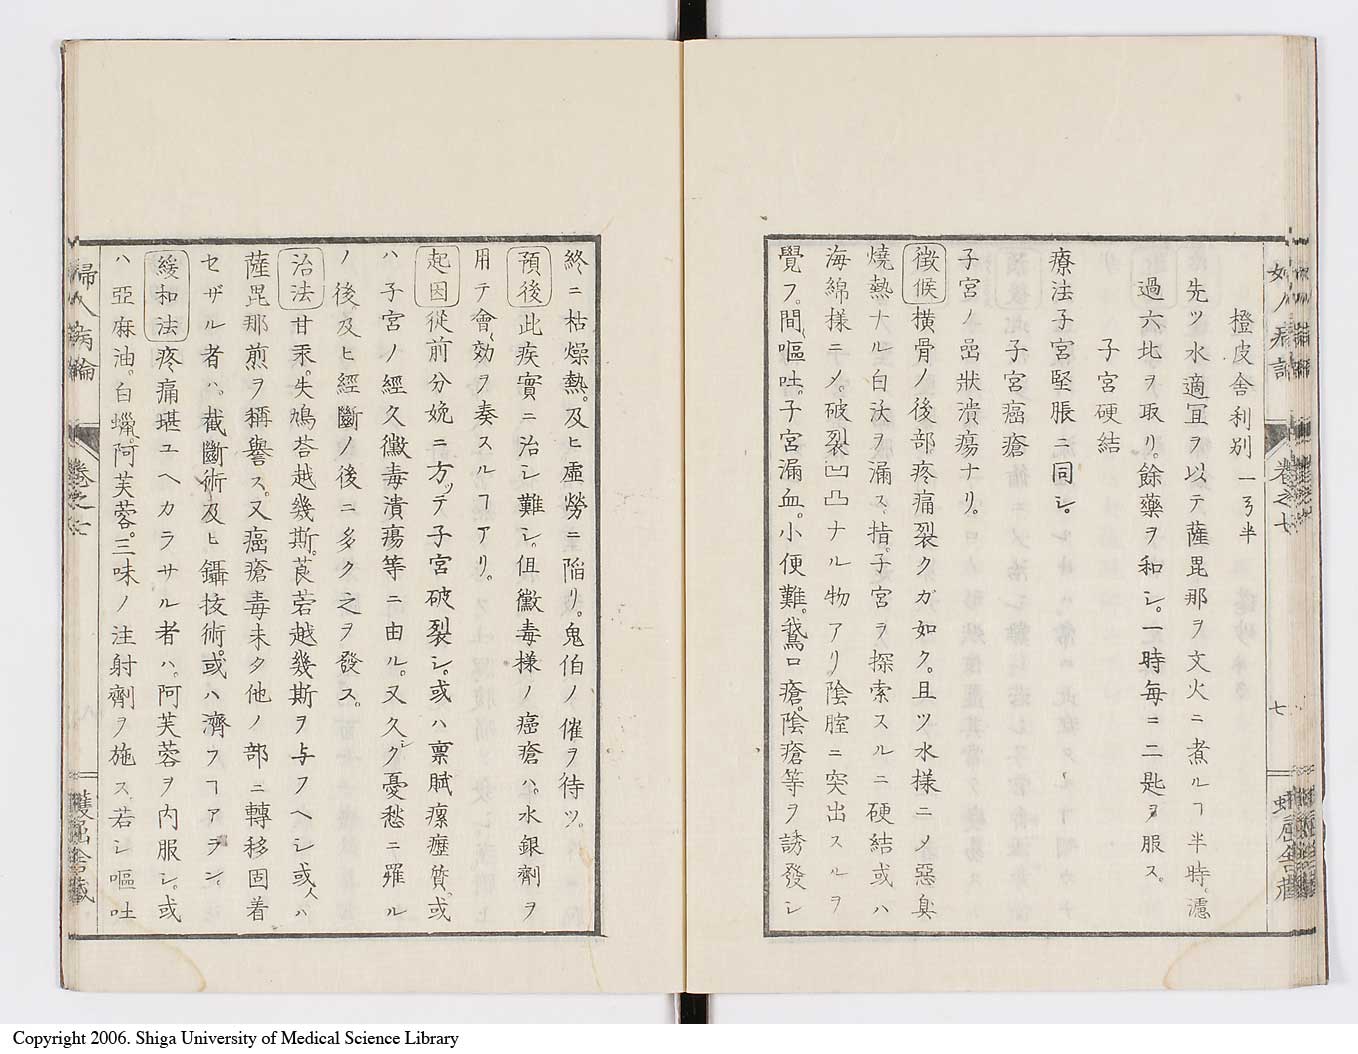 橙皮舎利別 一ヲ半
先ツ水適宜ヲ以テ薩毘那ヲ文火ニ煮ルヿ半時。濾
過六匕ヲ取リ。餘藥ヲ和シ。一時毎ニ二匙ヲ服ス。
子宮硬結
療法子宮堅脹ニ同シ。
子宮癌瘡
子宮ノ嵒狀潰瘍ナリ。
徴候 横骨ノ後部。疼痛裂クガ如ク。且ツ水様ニメ惡臭
燒熱ナル白汰ヲ漏ス。指。子宮ヲ探索スルニ硬結或ハ
海綿様ニメ。破裂凹凸ナル物アリ。陰腟ニ突出スルヲ
覺フ。間嘔吐。子宮漏血。小便難。鵞口瘡。陰瘡等ヲ誘發シ
七
終ニ枯燥熱。及ヒ虚勞ニ陥リ。鬼伯ノ催ヲ待ツ。
預後 此疾實ニ治シ難シ。但黴毒様ノ癌瘡ハ。水銀劑ヲ
用テ會〻効ヲ奏スルヿアリ。
起因 從前分娩ニ方ッテ子宮破裂シ。或ハ稟賦瘰癧質。或
ハ子宮ノ經久黴毒潰瘍等ニ由ル。又久シク憂愁ニ罹ル
ノ後。及ヒ經斷ノ後ニ多ク之ヲ發ス。
治法 甘汞。失鳩荅越幾斯。莨菪越幾斯ヲ与フヘシ或人ハ
薩毘那煎ヲ稱譽ス。又癌瘡毒未タ他ノ部ニ轉移固着
セザル者ハ。截斷術及ヒ鑷抜術。或ハ濟フヿアラン。
緩和法 疼痛堪ユヘカラサル者ハ。阿芙蓉ヲ内服シ。或
ハ亞麻油。白蠟。阿芙蓉。三味ノ注射劑ヲ施ス。若シ嘔吐
婦人病論 卷之七
Copyright 2006. Shiga University of Medical Science Library